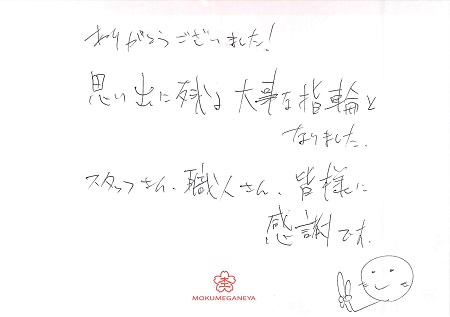 ありがとうございました!
思い出に残る大事な指輪と
なりました。
スタッフさん、職人さん、皆様に
感謝です。
杢
MOKUMEGANEYA